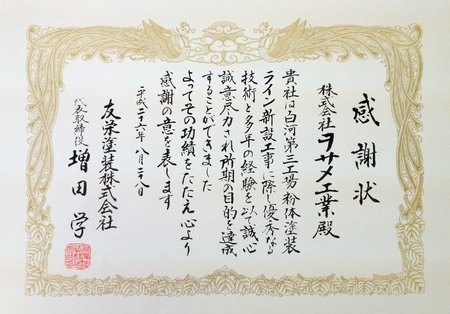 感謝状
株式会社ヲサメ工業殿
貴社は白河第三工場粉体塗装
ライン新設工事に際し優秀なる
技術と多年の経験を以て誠心
誠意尽力され所期の目的を達成
することができました
よってその功績をたたえ心より
感謝の意を表します
平成二十六年八月二十八日
友栄塗装株式会社
代表取締役 増田学